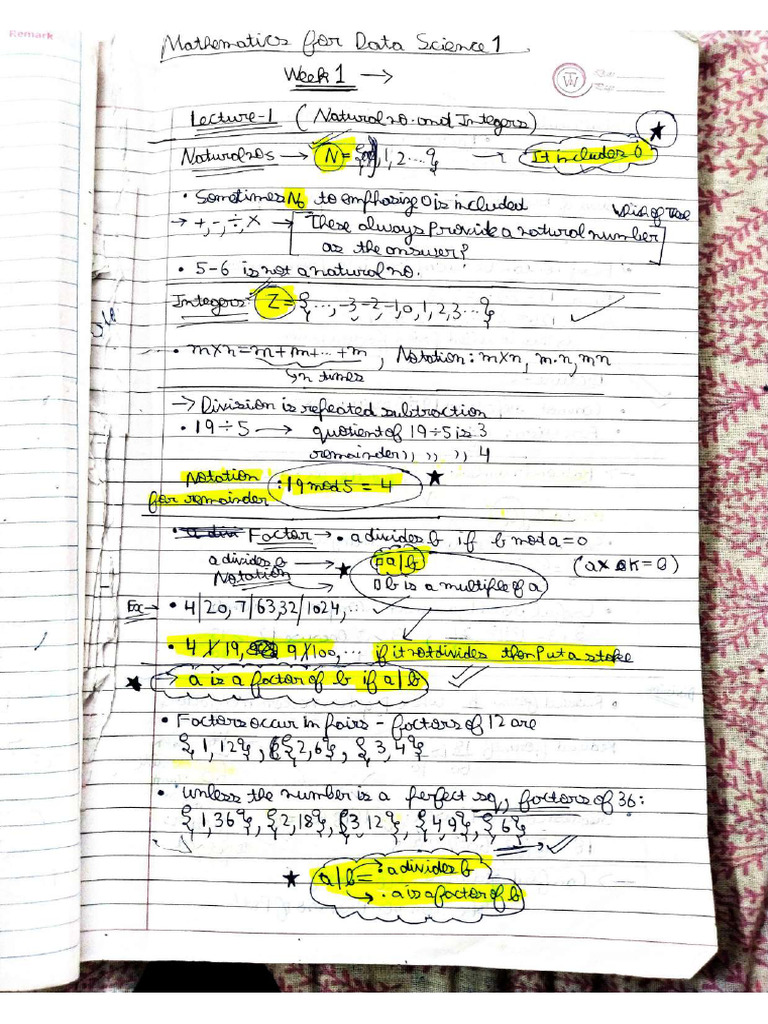 Remark
Mathematics for Data Science 1
Week 1 →
Lecture-1 (Natural no. and Integers)
Natural nos → N = {0, 1, 2 ....} → It includes 0
• Sometimes N₀ to emphasize 0 is included
Which of these
→ +, -, ÷, × → [These always provide a natural number
as the answer?]
• 5-6 is not a natural no.
Integers: Z = {..., -3, -2, -1, 0, 1, 2, 3 ...}
• m×n = m+m+...+m, Notation: m×n, m·n, mn
↳ n times
→ Division is repeated subtraction
• 19÷5 → quotient of 19÷5 is 3
remainder ,, ,, ,, 4
Notation
for remainder : 19 mod 5 = 4
• Factor → • a divides b if b mod a = 0
a divides b → a|b (a× k = b)
Notation → b is a multiple of a
Ex → • 4|20, 7|63, 32|1024, ...
• 4∤19, 9∤100, ... if it not divides then Put a stoke
→ a is a factor of b if a|b
• Factors occur in pairs - factors of 12 are
{1, 12}, {2, 6}, {3, 4}
• unless the number is a perfect sq, factors of 36:
{1, 36}, {2, 18}, {3, 12}, {4, 9}, {6}
a|b = → • a divides b
→ • a is a factor of b